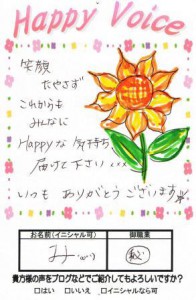 Happy Voice
笑顔
たやさず
これからも
みんなに
Happyな気持ち
届けて下さい
いつも ありがとうございます
お名前(イニシャル可)
御職業
み
貴方様の声をブログなどでご紹介してもよろしいですか?
□はい □いいえ □イニシャルなら可